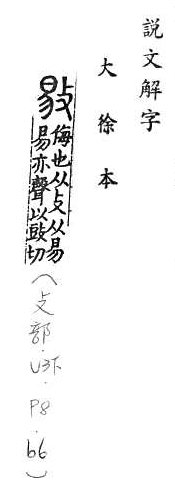 説文解字
大徐本
敡
侮也从攴从易
易亦聲以豉切
（攴部·U3下·P8·66）